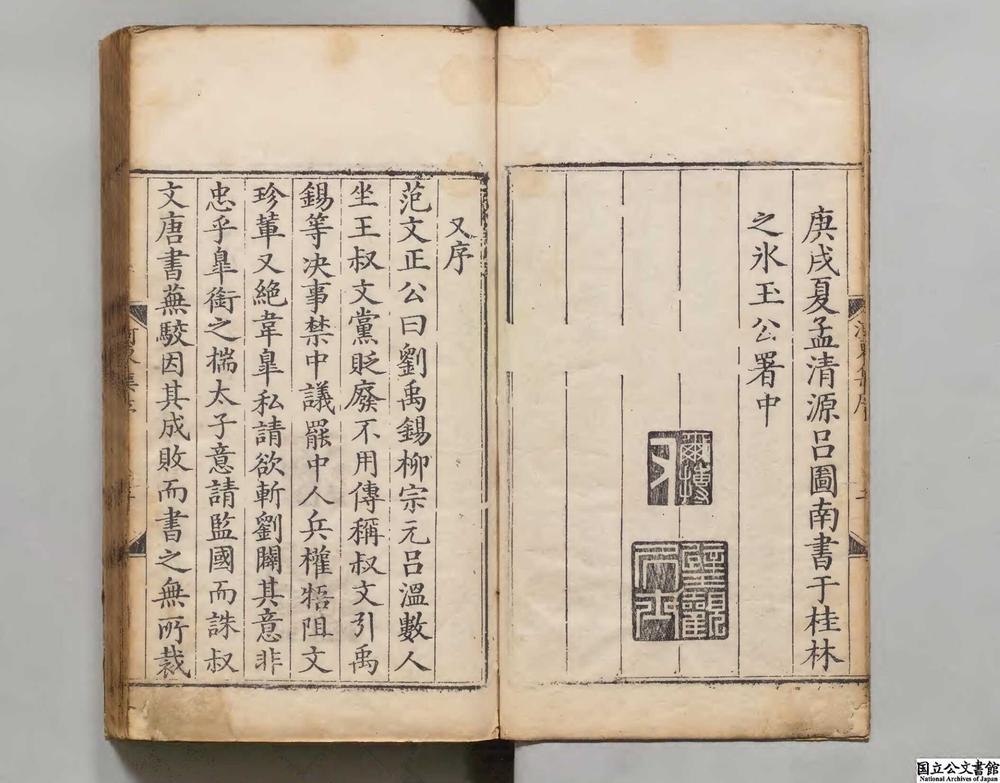 庚戌夏孟清源呂圖南書于桂林
之氷玉公署中
爾搏
又序
范文正公曰劉禹錫柳宗元呂溫數人
坐王叔文黨貶廢不用傳稱叔文引禹
錫等决事禁中議罷中人兵權牾阻文
珍軰又絶韋臯私請欲斬劉闢其意非
忠乎臯銜之揣太子意請監國而誅叔
文唐書蕪駮因其成敗而書之無所裁
国立公文書館
National Archives of Japan